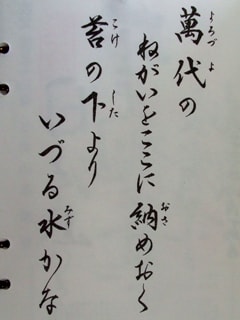 萬代の
ねがいをここに納めおく
苔の下より
いづる水かな
よろづ
よ
おさ
こけ
した
みず